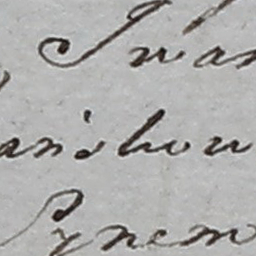 I wan
an's how
Pynem